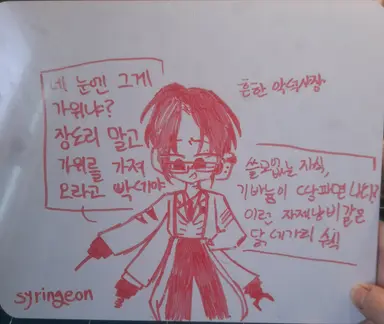 네 눈엔 그게
가위냐?
장도리 말고
가위를 가져
오라고 빡대가리야
흔한 악덕사장
쓸모없는 자식,
기바늄이 땅파면 나오냐
이런 자제낭비같은
닭 대가리 수식
syringeon